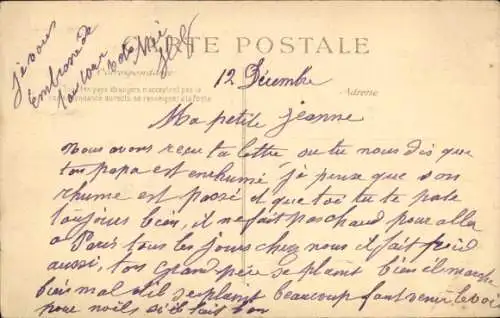 je vous
Embrasse de
tout cœur votre
CARTE POSTALE
Correspondance
Tous les pays étrangers n'acceptent pas la
correspondance au recto se renseigner à la Poste
Adresse
12 Décembre
Ma petite Jeanne
Nous avons reçu ta lettre ou tu nous dis que
ton papa est enrhumé je pense que son
rhume est passé et que toi tu te porte
toujours bien, il ne fait pas chaud pour aller
a Paris tous les jours chez nous il fait froid
aussi, ton Grand père se plaint bien il marche
bien mal il se plaint beaucoup faut venir le voir
pour noëls si il fait bon